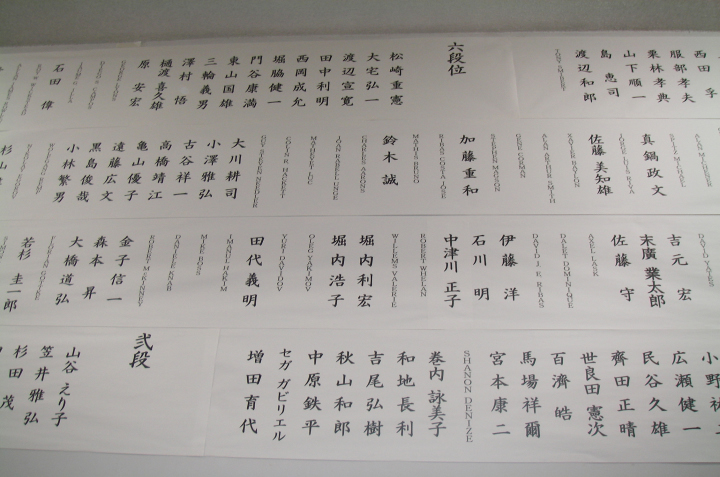 西田 孚
服部孝夫
栗林孝典
山下順一
島 恵司
渡辺和郎
TONY SMIBERT
六段位
松崎重憲
大宅弘一
渡辺宣寛
田中利明
西岡成允
堀脇健一
門谷康満
東山国雄
三輪義男
澤村 悟
樋渡喜久雄
原 安宏
石田 偉
SPITZ MICHAEL
真鍋政文
佐藤美知雄
XAVIER BAYLON
ALAN ARTHUR SMITH
GENE GORMAN
STEPHEN MASSON
加藤重和
RIBAS COSTA JOSE
MATTIS BRUNO
鈴木 誠
CHARLES AARONS
MALBERT LUC
COLIN R. HACKETT
大川耕司
小澤雅弘
古谷祥一
高橋靖江
亀山優子
遠藤広文
黒島俊哉
小林繁男
杉山
DAVID YATES
吉元 宏
末廣 業太郎
佐藤 守
AXEL LASK
DALET DOMINIQUE
DAVID J. E. RIBAS
伊藤 洋
石川 明
中津川 正子
ROBERT WHELAN
WILLEMS VALERIE
堀内利宏
堀内浩子
YURI DAVIDOV
田代義明
IMADU HAKIM
MIKE ROSS
DANIELE KHAN
ROBERT MCKINNEY
金子信一
森本 昇
大橋道弘
若杉 圭一郎
小野祐
広瀬健一
民谷久雄
齊田正晴
世良田憲次
百濟 皓
馬場祥爾
宮本康二
SHANON DENIZE
巻内 詠美子
和地長利
吉尾弘樹
秋山和郎
中原鉄平
セガ ガビリエル
増田育代
弐段
山谷えり子
笠井雅弘
杉田 茂